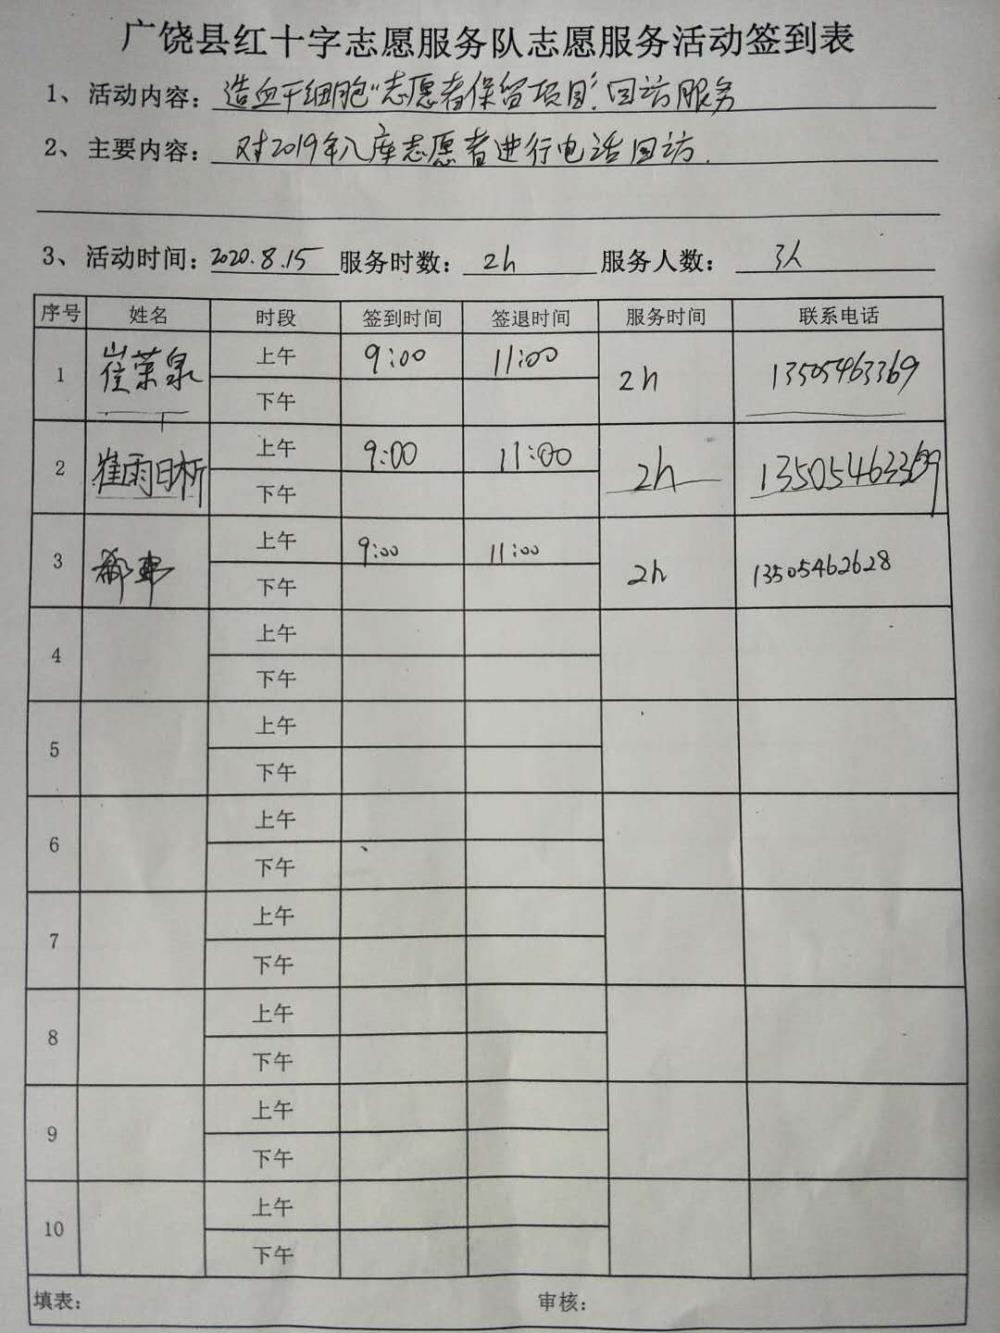 广饶县红十字志愿服务队志愿服务活动签到表
1、活动内容：造血干细胞“志愿者保留项目”回访服务
2、主要内容：对2019年入库志愿者进行电话回访.
3、活动时间：2020.8.15 服务时数：2h 服务人数：3人
序号 姓名 时段 签到时间 签退时间 服务时间 联系电话
1 崔荣泉 上午 9:00 11:00 2h 13505463369
下午
2 崔雨昕 上午 9:00 11:00 2h 13505463369
下午
3 上午 9:00 11:00 2h 13505462628
下午
4 上午
下午
5 上午
下午
6 上午
下午
7 上午
下午
8 上午
下午
9 上午
下午
10 上午
下午
填表： 审核：